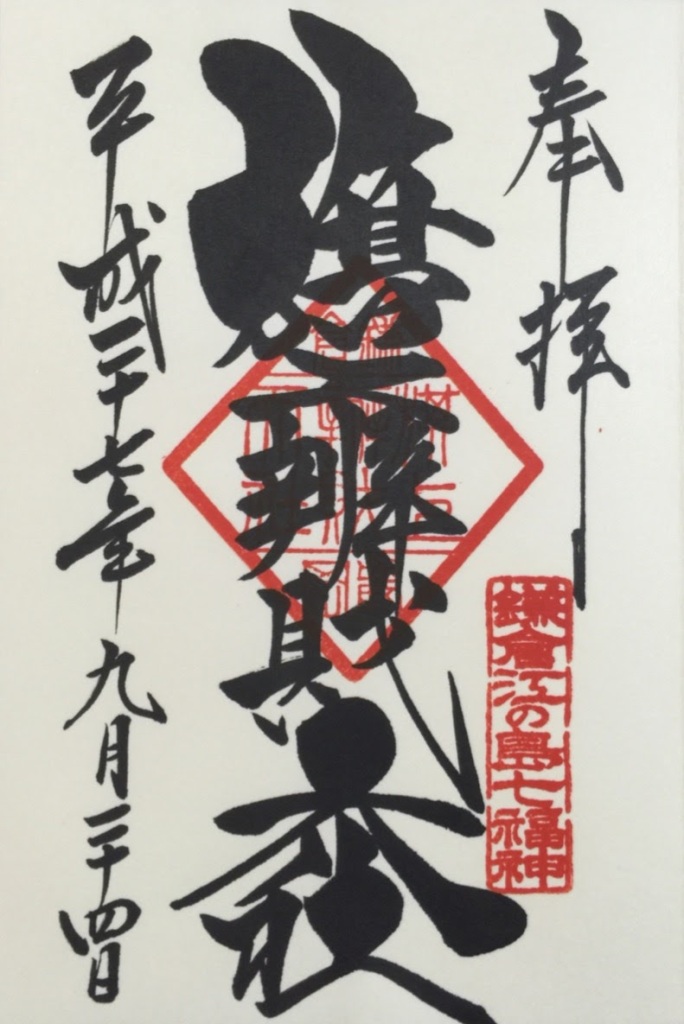 奉拝
鎌倉江の島七福神
旗上辨財天社
平成二十七年九月二十四日